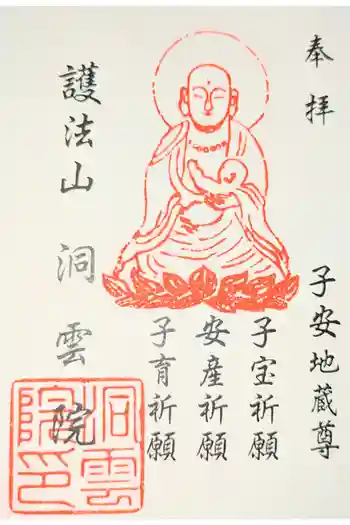 奉拝
子安地蔵尊
子宝祈願
安産祈願
子育祈願
護法山 洞雲院
洞雲院印